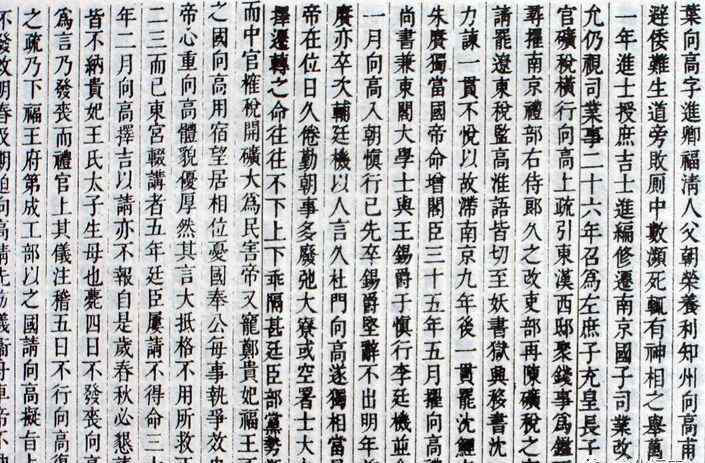 葉向高字進卿福清人父朝榮養利知州向高甫
避倭難生道旁敗厠中數瀕死輒有神相之舉萬
一年進士授庶吉士進編修遷南京國子司業改
允仍視司業事二十六年召爲左庶子充皇長子
官礦稅橫行向高上疏引東漢西邸聚錢事爲鑑
尋擢南京禮部右侍郎久之改吏部再陳礦稅之
請罷遼東稅監高淮語皆切至妖書獄興移書沈
力諫一貫不悅以故滯南京九年後一貫罷沈鯉
朱賡獨當國帝命增閣臣三十五年五月擢向高禮
尚書兼東閣大學士與王錫爵于慎行李廷機並
一月向高入朝慎行已先卒錫爵堅辭不出明年
賡亦卒次輔廷機以人言久杜門向高遂獨相當
帝在位日久倦勤朝事多廢弛大寮或空署士大
擇遷轉之命往往不下上下乖隔甚廷臣部黨勢
而中官榷稅開礦大爲民害帝又寵鄭貴妃福王
之國向高用宿望居相位憂國奉公每事執爭效
帝心重向高體貌優厚然其言大抵格不用所救
二三而已東宮輟講者五年廷臣屢請不得命三
年二月向高擇吉以請亦不報自是歲春秋必懇
皆不納貴妃王氏太子生母也薨四日不發喪向
爲言乃發喪而禮官上其儀注稽五日不行向高復
之疏乃下福王府第成工部以之國請向高擬旨上
不發改明春及期迫向高請先飭儀衞舟車帝不